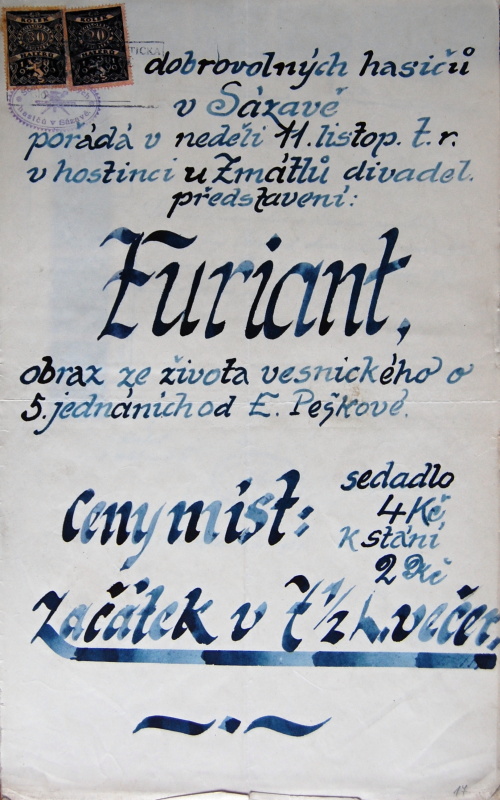 KOLEK
30
KOLEK
20
TICKÁ
hasičů v Sázavě
dobrovolných hasičů
v Sázavě
pořádá v neděli 11. listop. t. r.
v hostinci u Zmátlů divadel.
představení:
Furiant,
obraz ze života vesnického o
5. jednáních od E. Peškové.
Ceny míst:
sedadlo
4 Kč
k stání
2 Kč
Začátek v 7 1/2 h. večer.
17